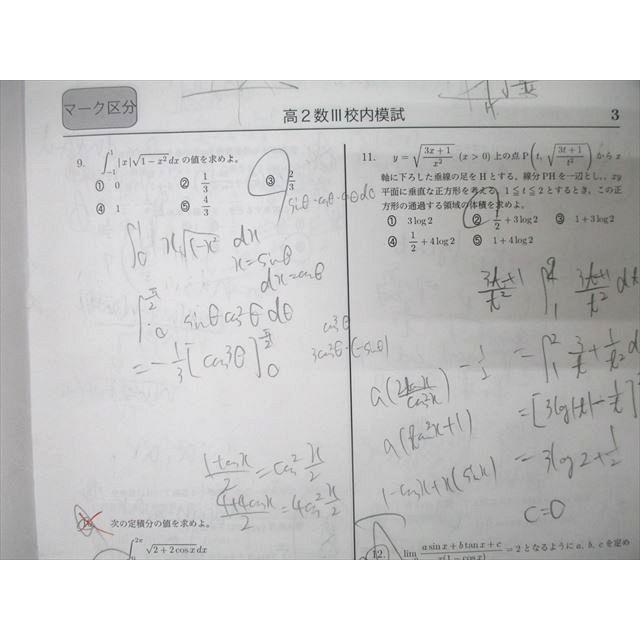 マーク区分
高2数Ⅲ校内模試
3
9. ∫_{-1}^{1} |x|√(1-x²) dx の値を求めよ。
① 0 ② 1/3 ③ 2/3
④ 1 ⑤ 4/3
sinθ·cosθ·cosθ dθ
∫_0^1 x√(1-x²) dx
x=sinθ
dx=cosθ
∫_0^{π/2} sinθcos²θ dθ
cos³θ
3cos²θ·(-sinθ)
= -1/3 [cos³θ]_0^{π/2}
= cos² x/2
= 4cos² x/2
次の定積分の値を求めよ。
∫_0^{2π} √(2+2cosx) dx
11. y = √((3x+1)/x²) (x>0) 上の点 P(t, √((3t+1)/t²)) から x
軸に下ろした垂線の足を H とする。線分 PH を一辺とし、xy
平面に垂直な正方形を考える。1≦t≦2 とするとき、この正
方形の通過する領域の体積を求めよ。
① 3log2 ② 1/2+3log2 ③ 1+3log2
④ 1/2+4log2 ⑤ 1+4log2
= ∫_1^2 3/t + 1/t² d
= [3log|t| - 1/t]
= 3log2+1/2
1-cosx+x(sinx)
C=0
12. lim (a sin x + b tan x + c)/(x(1-cos x)) = 2 となるように a, b, c を定め